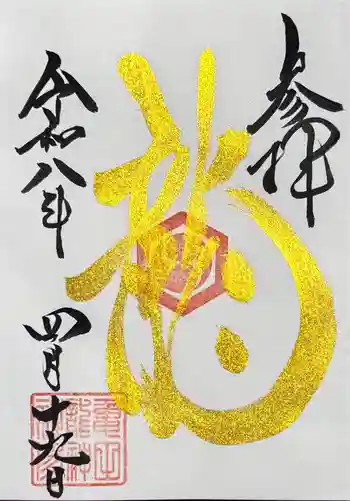 参拝
龍
令和八年
四月十九日